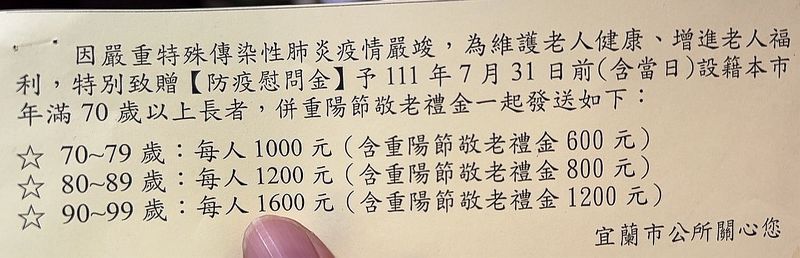 因嚴重特殊傳染性肺炎疫情嚴峻，為維護老人健康、增進老人福
利，特別致贈【防疫慰問金】予 111 年 7 月 31 日前(含當日)設籍本市
年滿 70 歲以上長者，併重陽節敬老禮金一起發送如下：
☆ 70~79 歲：每人 1000 元（含重陽節敬老禮金 600 元）
☆ 80~89 歲：每人 1200 元（含重陽節敬老禮金 800 元）
☆ 90~99 歲：每人 1600 元（含重陽節敬老禮金 1200 元）
宜蘭市公所關心您